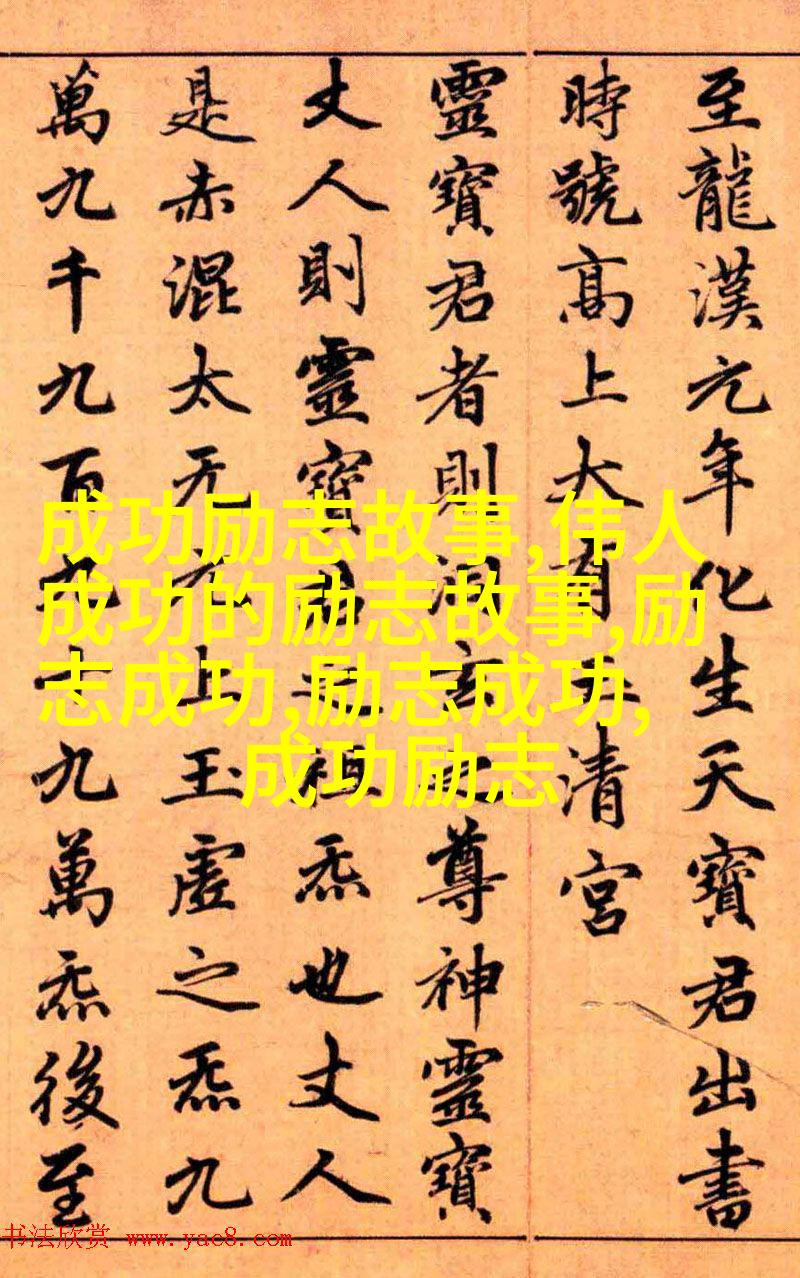 至龍漢元年化生天寶君出書
時號高上大有玉清宮
靈寶君者則洞玄之尊神靈寶
丈人則靈寶君之祖炁也丈人
是赤混太无元上玉虛之炁九
萬九千九百九十九萬炁後至
成功励志故事,伟人
成功的励志故事,励
志成功,励志成功,
成功励志
书法欣赏 www.yac8.com